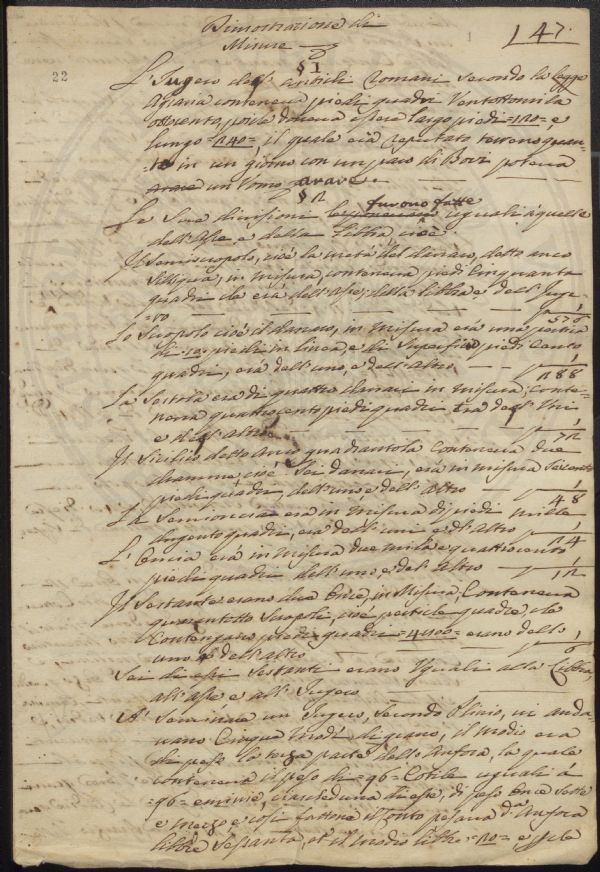 Dimostrazione di
Misure
147.
22
§ 1
L'Iugero degl'antichi Romani secondo la legge
Agraria conteneva piedi quadri Ventottomila
ottocento, poiche doveva essere largo piedi =120=, e
lungo =240=, il quale era reputato terreno quan-
to in un giorno con un paro di Bovi poteva
arare un Uomo arare.
§ 2
furono fatte
Le sue divisioni uguali à quelle
dell'Asse, e della Libbra cioè
Il Semiscropolo, cioè la metà del danaro, detto anco
Siliqua, in misura, conteneva piedi Cinquanta
quadri che era dell'Asse, della libbra e dell'Juge-
ro 1/576
Lo Scropolo cioè il danaro, in misura era una pertica
di 10 piedi in linea, e di Superficie piedi Cento
quadri, era dell'uno, e dell'altro 1/288
La Sestola era di quattro danari in misura, conte-
neva quattrocento piedi quadri era degl'Uni
e degl'altri 1/72
Il Sicilico detto Anco quadrantola conteneva due
dramme, cioè Sei danari, era in misura Seicento
piedi quadri dell'uno e dell'altro 1/48
La Semioncia era in misura di piedi mille
dugento quadri, era dell'uni e d'altro 1/24
L'Oncia era in misura due mila e quattrocento
piedi quadri dell'uno, e del'altro 1/12
Il Sestante erano due Once, in Misura, Conteneva
quarantotto Scropoli, cioè perticle quadre, che
Contengano piedi quadri =4800= erano dello
uno e dell'altro 1/6
Sei di essi Sestanti erano Uguali alla Libbra,
all'Asse e all'Jugero
A' Seminare un Jugero, Secondo Plinio, vi anda-
vano Cinque Modi di grano, il Modio era
di peso la terza parte dell'Anfora, la quale
conteneva il peso di =96= Cotile uguali à
=96= emine, ciascheduna di esse, di peso Once Sette
e mezzo e così fattone il Conto pesava d.a Anfora
libbre Sessanta, et il modio libbre =20= e Se le